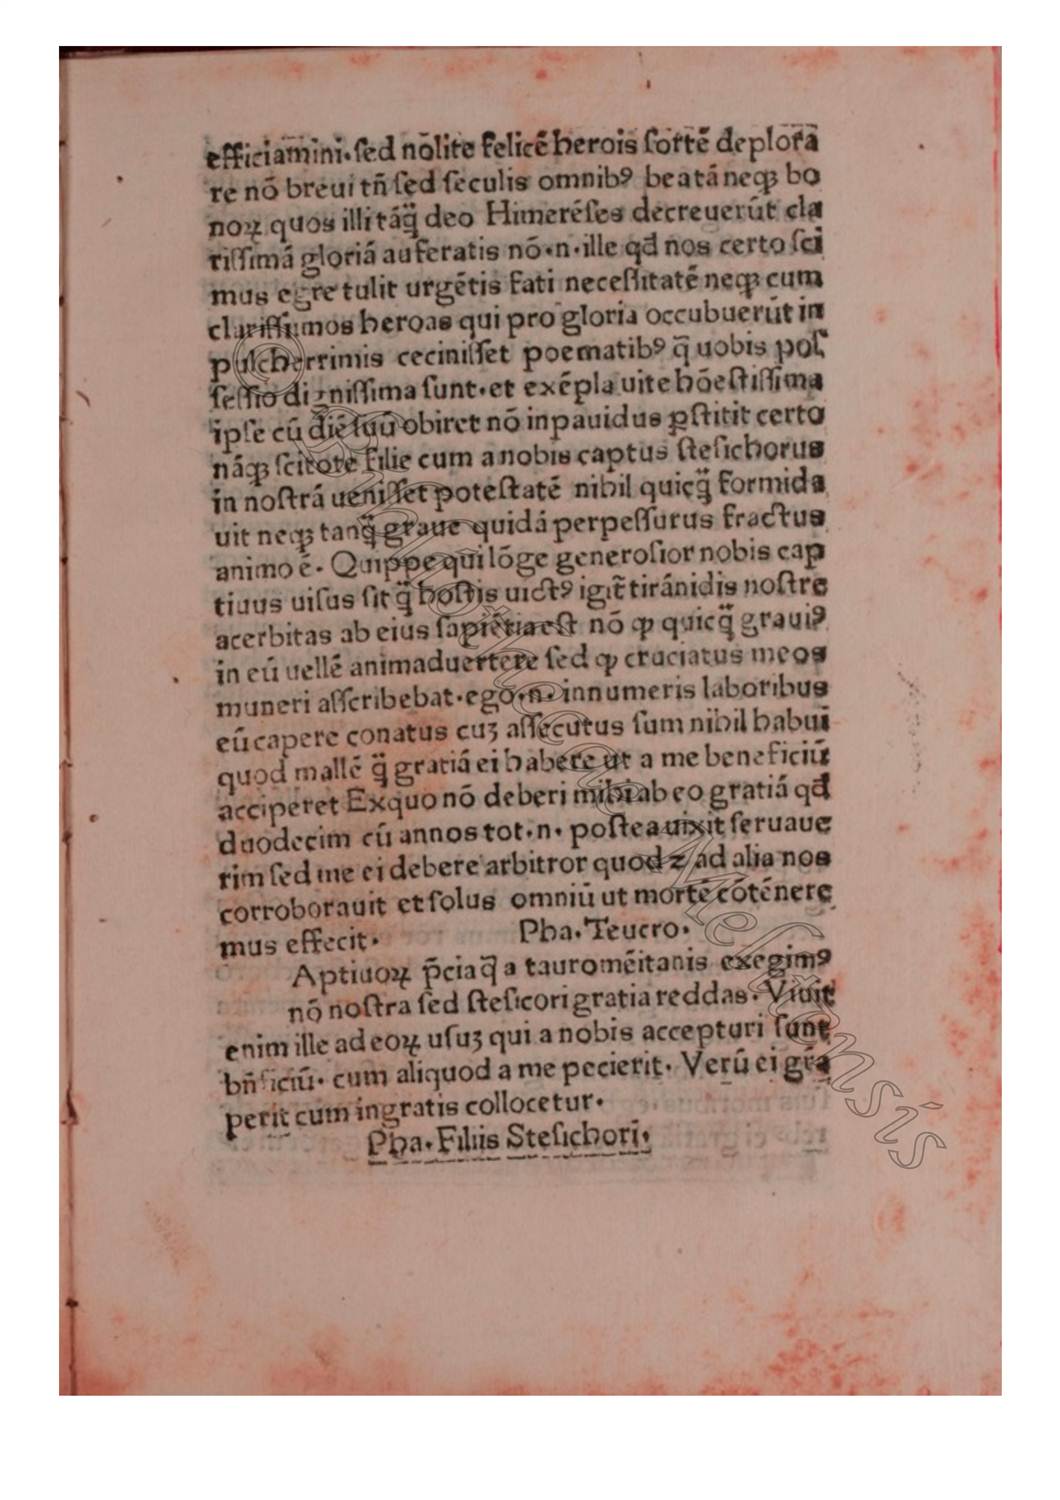 efficiamini·ſed nōlite felicē herois ſortē deplora
re nō breui tñ ſed ſeculis omnibꝰ beatā neqꝫ bo
noꝝ quos illi tāq̄ deo Himerēſes decreuerūt cla
riſſimā gloriā auferatis nō·n·ille qđ nos certo ſci
mus egre tulit urgētis fati neceſſitatē neqꝫ cum
clariſſimos heroas qui pro gloria occubuerūt in
pulcherrimis ceciniſſet poematibꝰ q̄ uobis poſ
ſeſſio digniſſima ſunt·et exēpla uite hōeſtiſſima
ipſe cū diē ſuū obiret nō inpauidus ꝑſtitit certo
nāqꝫ ſcitote filie cum a nobis captus ſteſichorus
in noſtrā ueniſſet poteſtatē nihil quicq̄ formida
uit neqꝫ tanq̄ graue quidā perpeſſurus fractus
animo ē· Quippe qui lōge generoſior nobis cap
tiuus uiſus ſit q̄ hoſtis uictꝰ igit̄ tirānidis noſtre
acerbitas ab eius ſapiētia eſt nō ꝙ quicq̄ grauiꝰ
in eū uellē animaduertere ſed ꝙ cruciatus meos
muneri aſſcribebat·ego·n·innumeris laboribus
eū capere conatus cuꝫ aſſecutus ſum nihil habui
quod mallē q̄ gratiā ei habere ut a me beneficiū
acciperet Exquo nō deberi mihi ab eo gratiā qđ
duodecim cū annos tot·n· poſtea uixit ſeruaue
rim ſed me ei debere arbitror quod ⁊ ad alia nos
corroborauit et ſolus omniū ut mortē cōtēnere
mus effecit· Pha·Teucro·
Aptiuoꝝ p̄cia q̄ a tauromēitanis exegimꝰ
nō noſtra ſed ſteſicori gratia reddas· Viuit
enim ille ad eoꝝ uſuꝫ qui a nobis accepturi ſunt
bn̄ficiū· cum aliquod a me pecierit· Verū ei gr̄a
perit cum ingratis collocetur·
Pha·Filiis Steſichori·
© Bibliotheca Melitensis